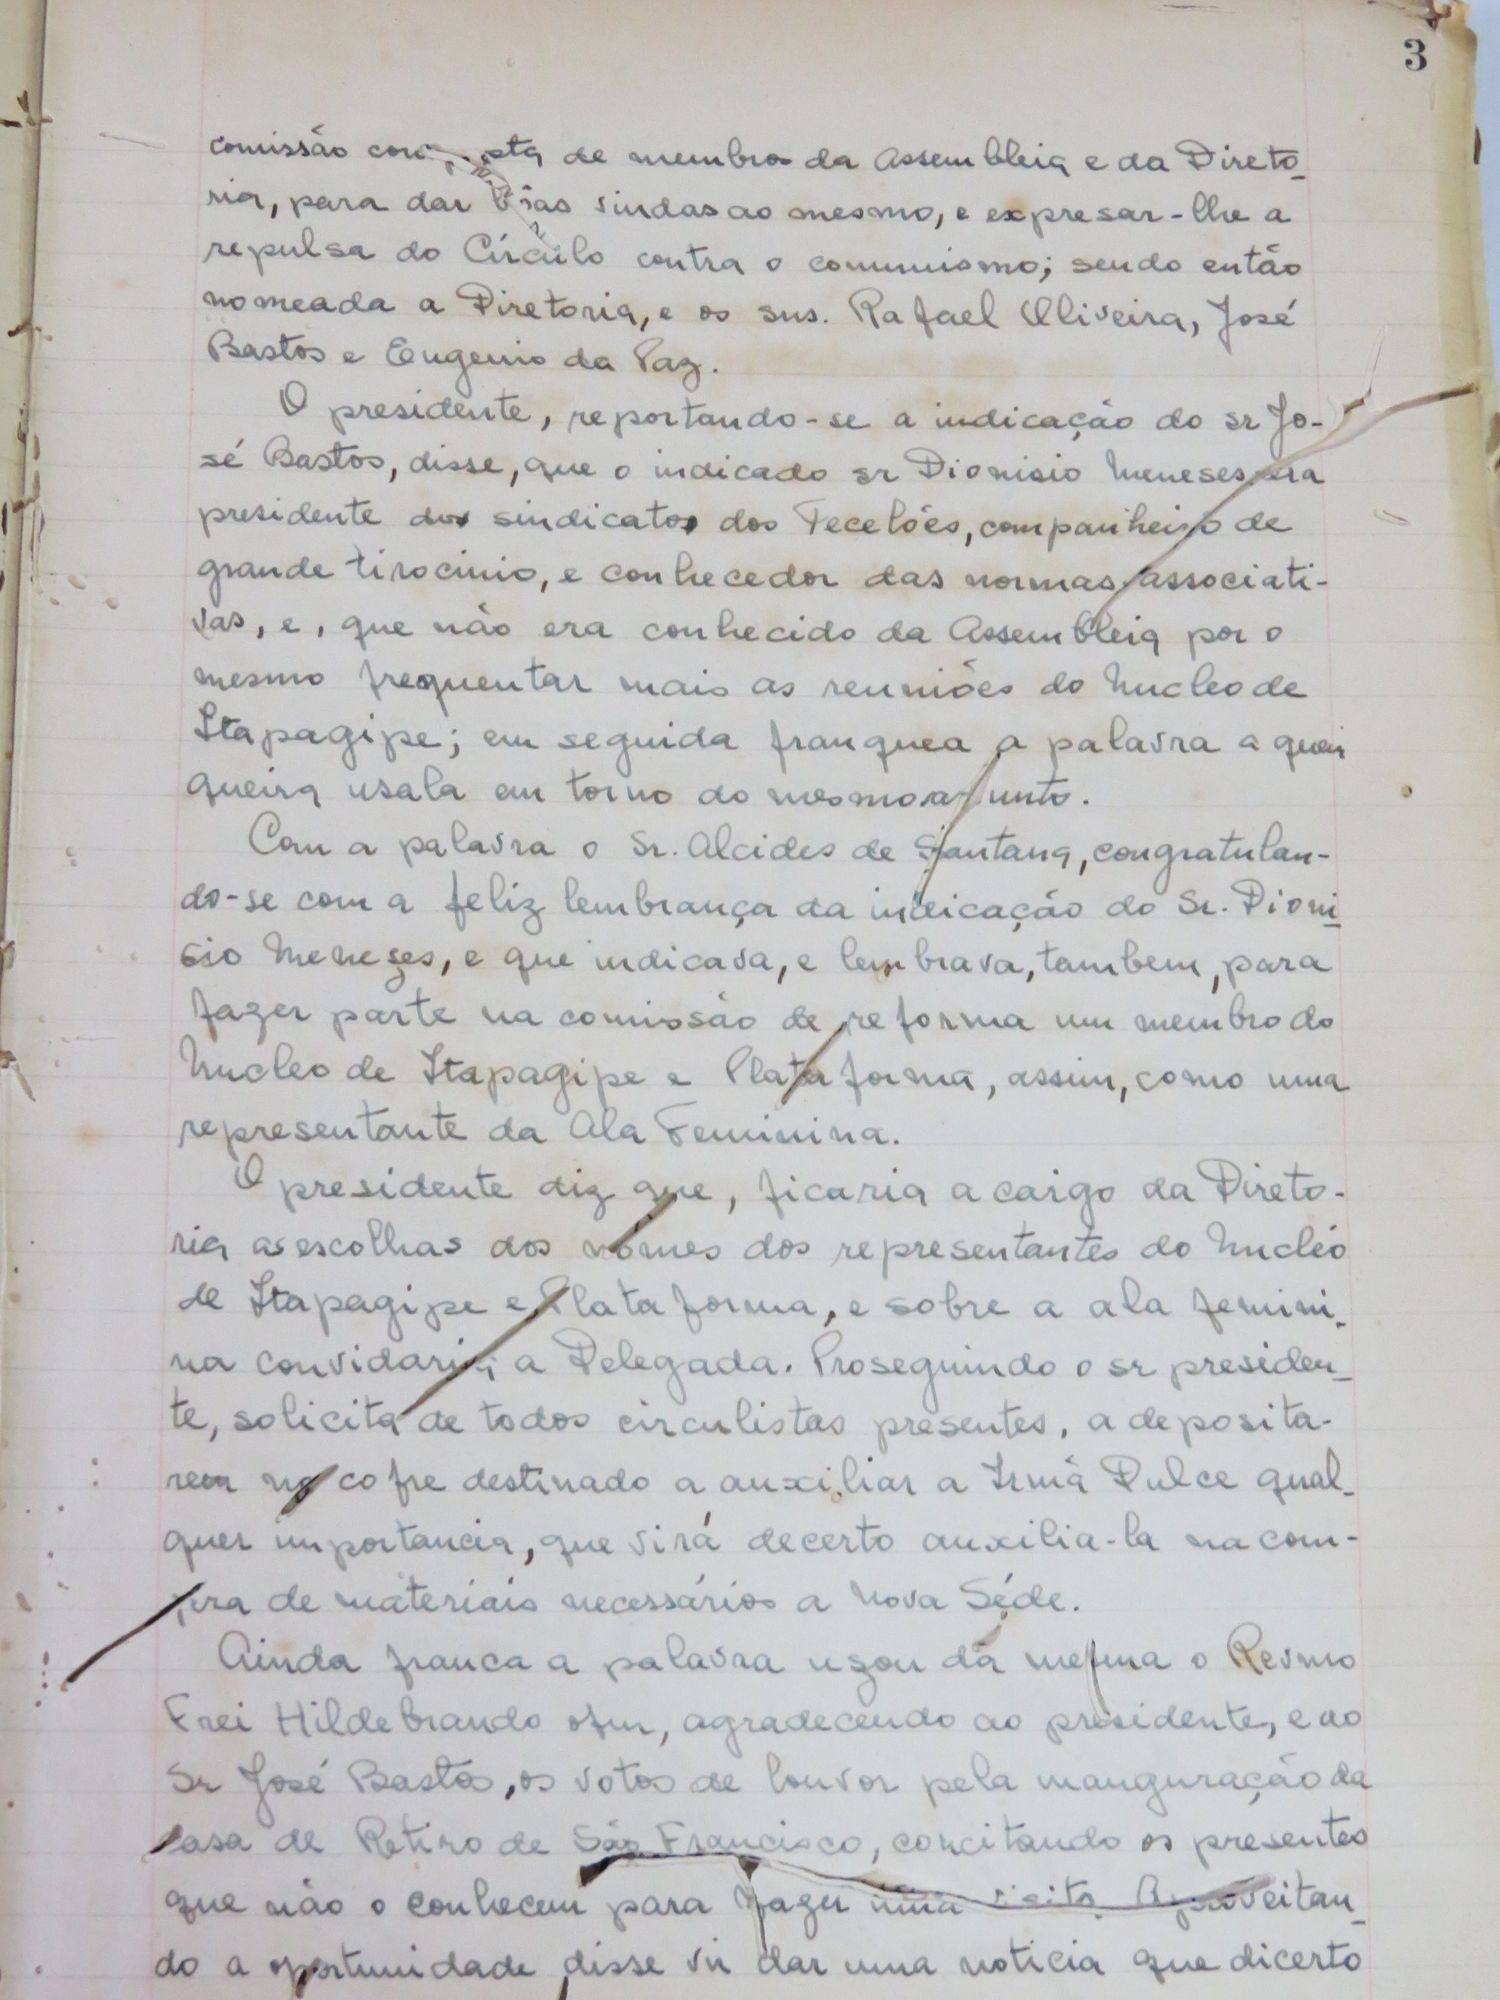 3
comissão composta de membros da Assembleia e da Direto_
ria, para dar bôas vindas ao mesmo, e expresar-lhe a
repulsa do Círculo contra o comunismo; sendo então
nomeada a Diretoria, e os snrs. Rafael Oliveira, José
Bastos e Eugenio da Paz.
O presidente, reportando-se a indicação do sr Jo-
sé Bastos, disse, que o indicado sr Dionisio Meneses era
presidente dos sindicatos dos Tecelões, companheiro de
grande tirocinio, e conhecedor das normas associati-
vas, e, que não era conhecido da Assembleia por o
mesmo frequentar mais as reuniões do Nucleo de
Itapagipe; em seguida franquea a palavra a quem
queira usala em torno do mesmo assunto.
Com a palavra o Sr. Alcides de Santana, congratulan-
do-se com a feliz lembrança da indicação do Sr. Dioni_
sio Menezes, e que indicava, e lembrava, tambem, para
fazer parte na comissão de reforma um membro do
Nucleo de Itapagipe e Plataforma, assim, como uma
representante da Ala Feminina.
O presidente diz que, ficaria a cargo da Direto-
ria as escolhas dos nomes dos representantes do Nucléo
de Itapagipe e Plataforma, e sobre a ala femini_
na convidaria a Delegada. Proseguindo o sr presiden_
te, solicita de todos circulistas presentes, a deposita-
rem no cofre destinado a auxiliar a Irmã Dulce qual_
quer importancia, que virá decerto auxilia-la na com-
pra de materiais necessários a Nova Séde.
Ainda franca a palavra uzou da mesma o Revmo
Frei Hildebrando ofm, agradecendo ao presidente, e ao
Sr José Bastos, os votos de louvor pela inauguração da
Casa de Retiro de São Francisco, concitando os presentes
que não o conhecem para fazer uma visita. Aproveitan_
do a oportunidade disse vir dar uma noticia que dicerto